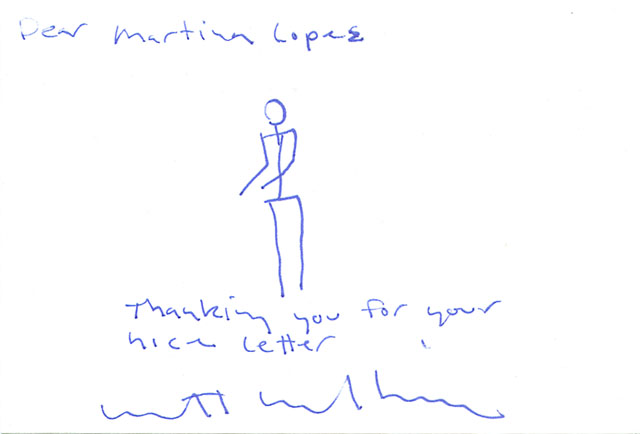 Dear Martina Lopez
Thanking you for your
nice letter